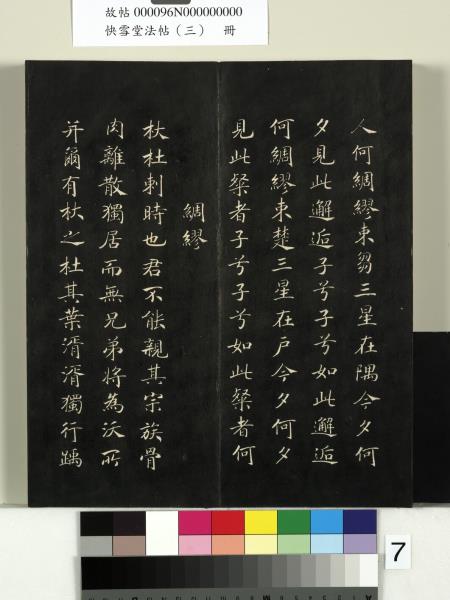 故帖 000096N000000000
快雪堂法帖（三） 冊
人何綢繆束芻三星在隅今夕何
夕見此邂逅子兮子兮如此邂逅
何綢繆束楚三星在戶今夕何夕
見此粲者子兮子兮如此粲者何
綢繆
杕杜刺時也君不能親其宗族骨
肉離散獨居而無兄弟將為沃所
并爾有杕之杜其葉湑湑獨行踽
7